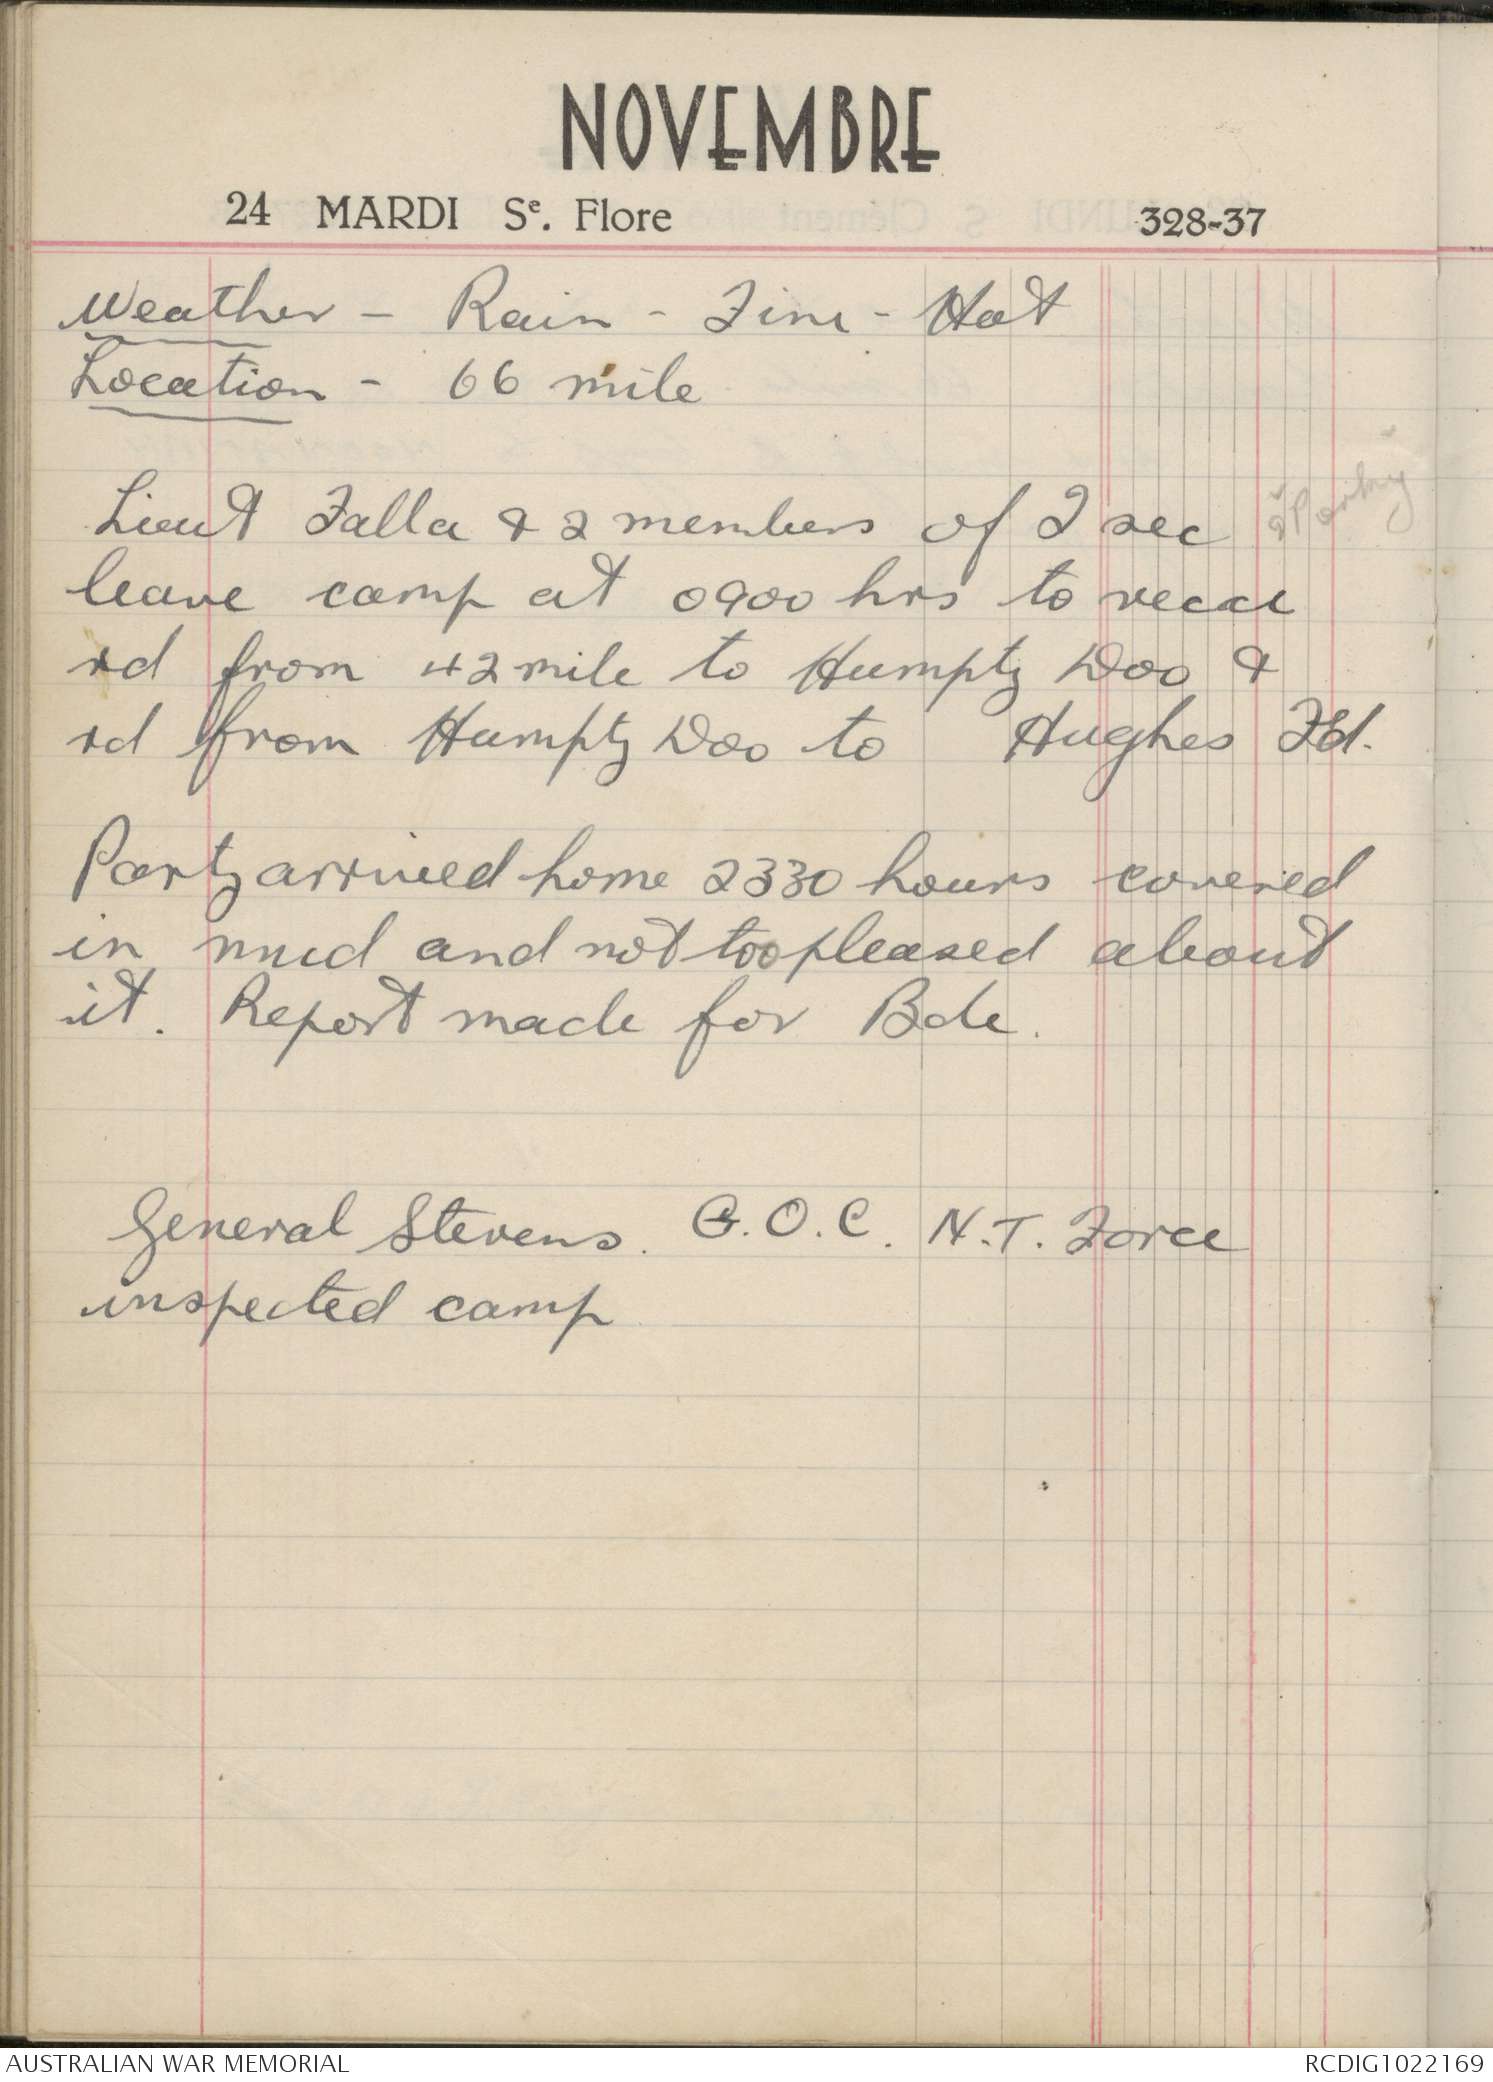 NOVEMBRE
24 MARDI Se. Flore 328-37
Weather - Rain - Fine - Hot
Location - 66 mile
Lieut Falla & 2 members of I sec
leave camp at 0900 hrs to recce
rd from 42 mile to Humpty Doo &
rd from Humpty Doo to Hughes Fd.
Party arrived home 2330 hours covered
in mud and not too pleased about
it. Report made for Bde.
General Stevens. G.O.C. N.T. Force
inspected camp
AUSTRALIAN WAR MEMORIAL RCDIG1022169